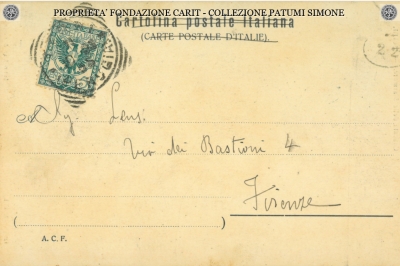 PROPRIETA' FONDAZIONE CARIT - COLLEZIONE PATUMI SIMONE
Cartolina postale Italiana
(CARTE POSTALE D'ITALIE).
Via dei Bastioni 4
Firenze
A. C. F.